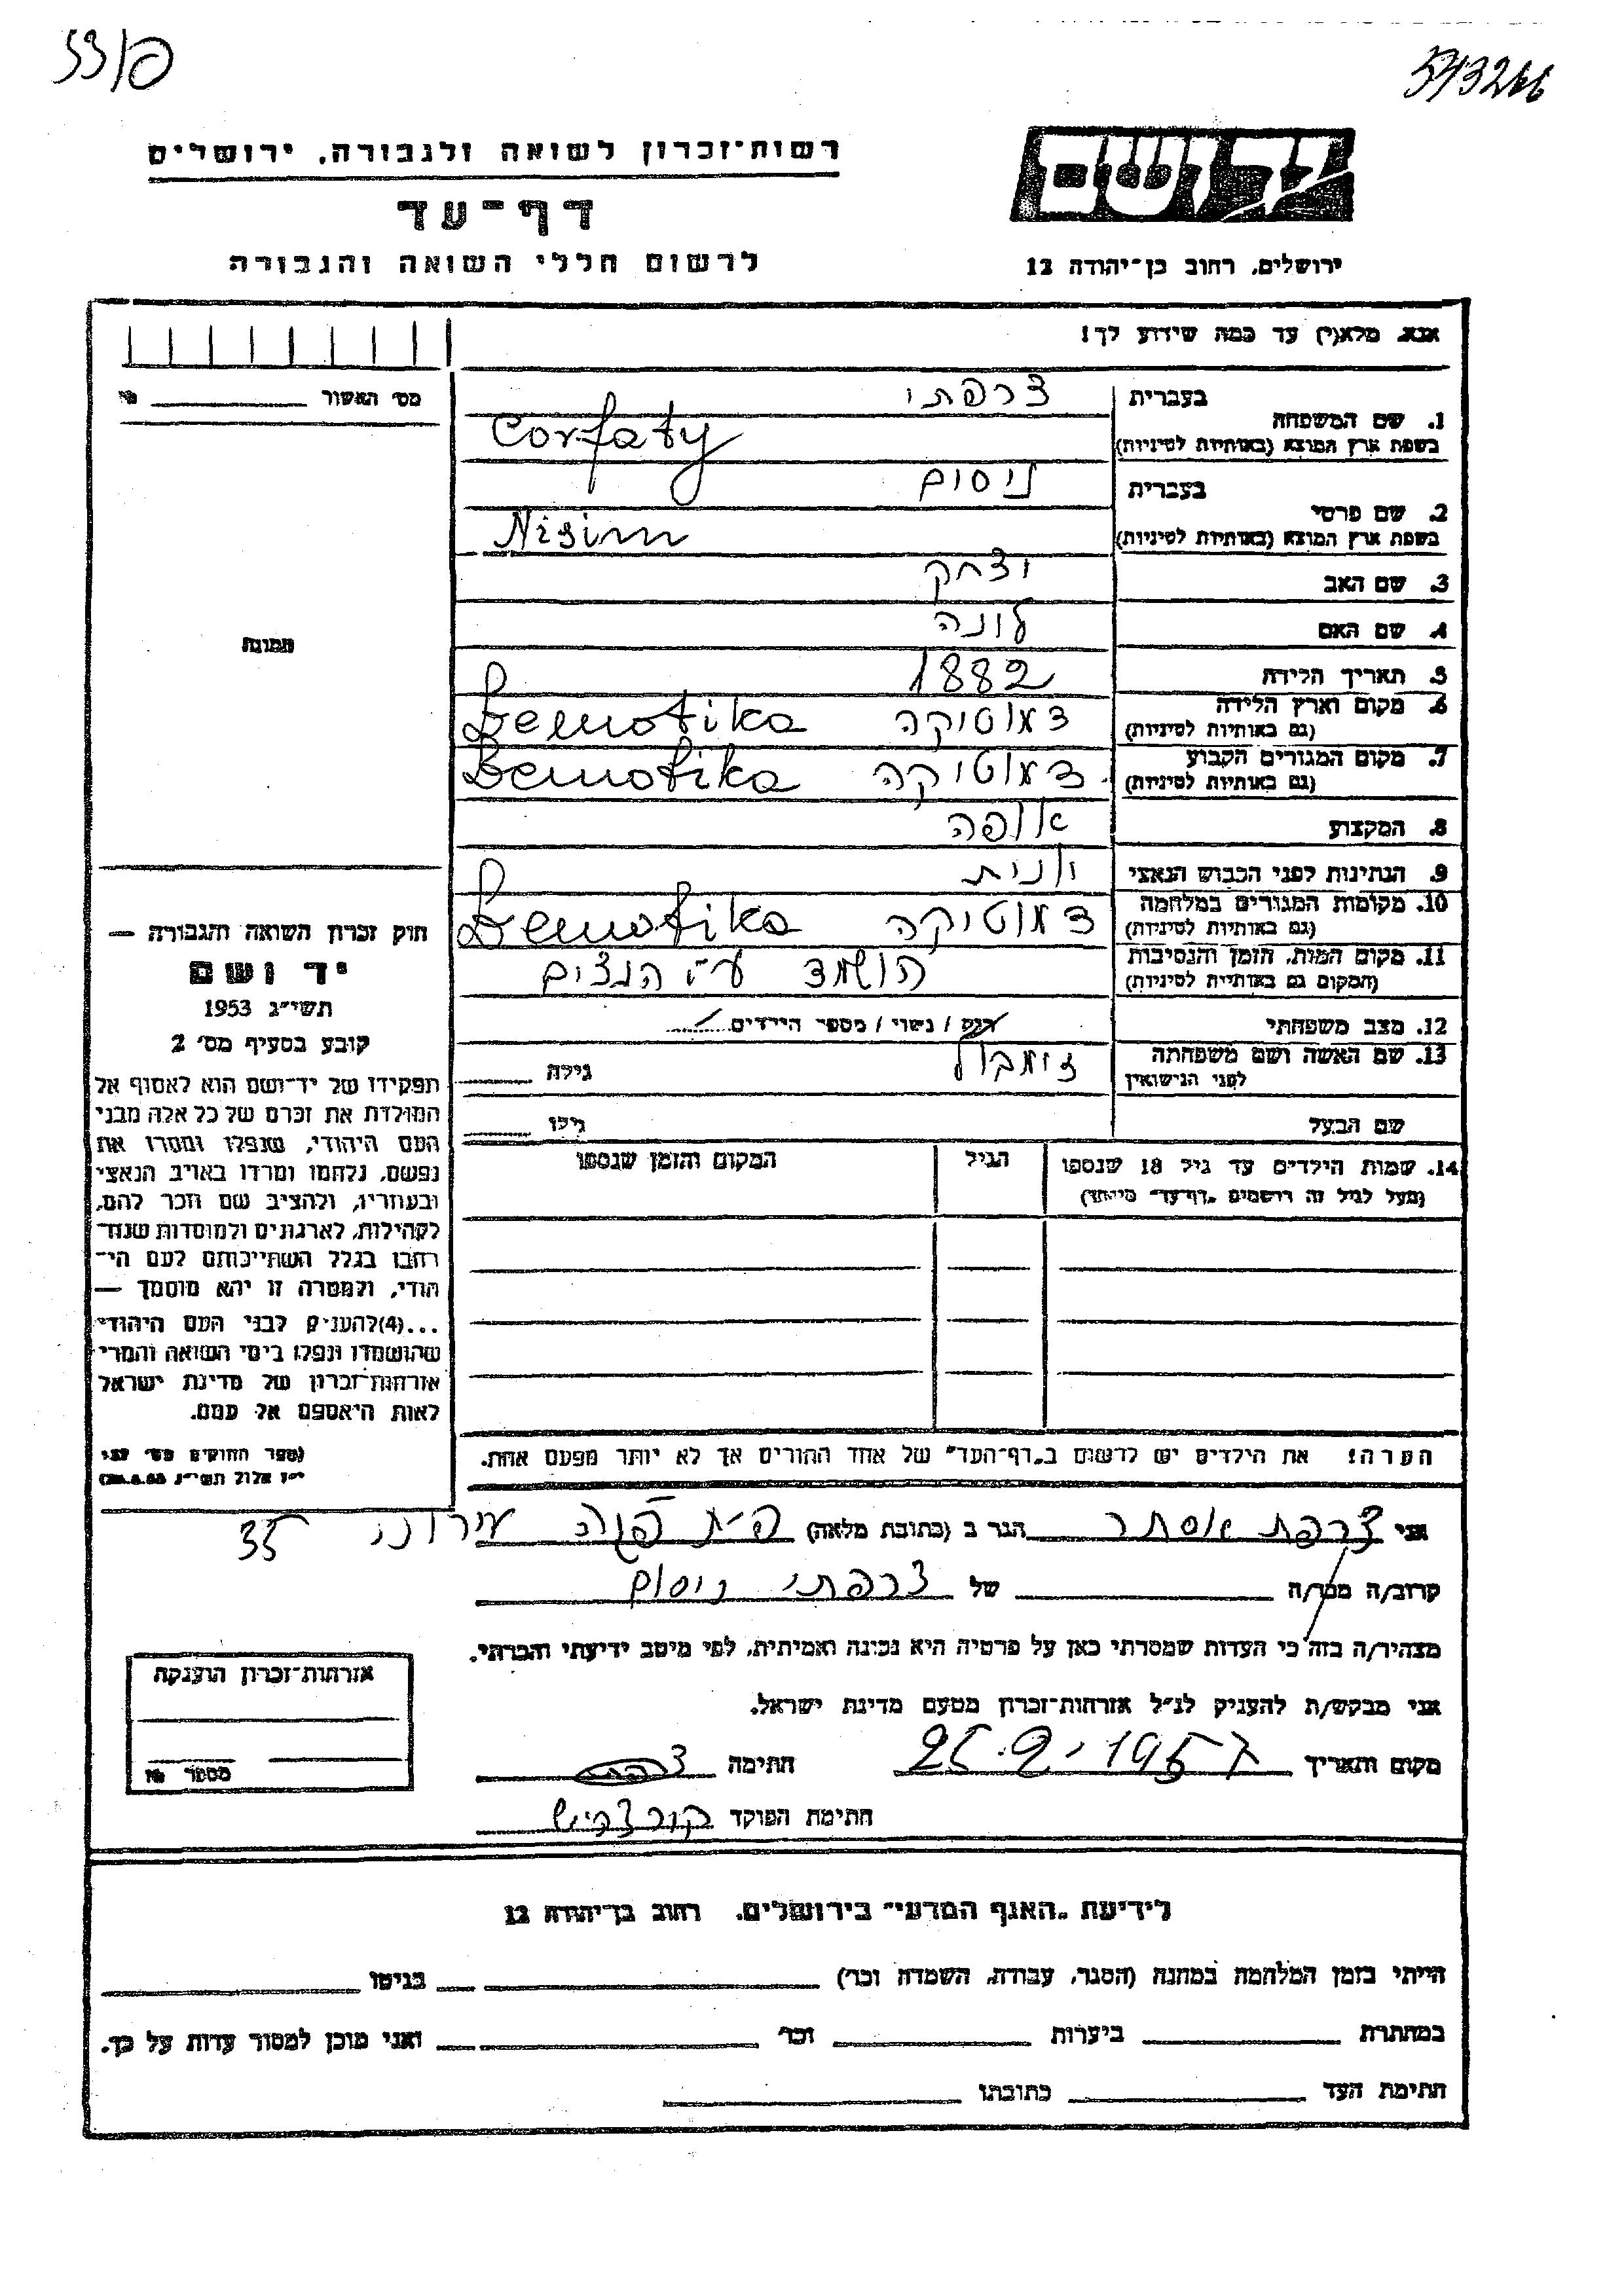 543266
רשות־זכרון לשואה ולגבורה. ירושלים
יד ושם
דף־עד
לרשום חללי השואה והגבורה
ירושלים, רחוב בן־יהודה 12
אנא, מלא(י) עד כמה שידוע לך!
מס׳ האשור № 
1. שם המשפחה בעברית צרפתי
בשפת ארץ המוצא (באותיות לטיניות) Corfaty
2. שם פרטי בעברית ניסים
בשפת ארץ המוצא (באותיות לטיניות) Nisim
3. שם האב יצחק
4. שם האם לונה
תמונה
5. תאריך הלידה 1882
6. מקום וארץ הלידה דמוטיקה Demotika
(גם באותיות לטיניות)
7. מקום המגורים הקבוע דמוטיקה Demotika
(גם באותיות לטיניות)
8. המקצוע אופה
9. הנתינות לפני הכבוש הנאצי יונית
10. מקומות המגורים במלחמה דמוטיקה Demotika
(גם באותיות לטיניות)
11. מקום המות, הזמן והנסיבות הושמד ע״י הנצים
(המקום גם באותיות לטיניות)
12. מצב משפחתי רווק / נשוי / מספר הילדים
13. שם האשה ושם משפחתה זימבול גילה
לפני הנישואין
שם הבעל גילו
14. שמות הילדים עד גיל 18 שנספו הגיל המקום והזמן שנספו
(מעל לגיל זה רושמים „דף־עד״ מיוחד)
חוק זכרון השואה והגבורה —
יד ושם
תשי״ג 1953
קובע בסעיף מס׳ 2
תפקידו של יד־ושם הוא לאסוף אל
המולדת את זכרם של כל אלה מבני
העם היהודי, שנפלו ומסרו את
נפשם, נלחמו ומרדו באויב הנאצי
ובעוזריו, ולהציב שם וזכר להם,
לקהילות, לארגונים ולמוסדות שנח־
רבו בגלל השתייכותם לעם הי־
הודי, ולמטרה זו יהא מוסמך —
...(4)להעניק לבני העם היהודי
שהושמדו ונפלו בימי השואה והמרי
אזרחות־זכרון של מדינת ישראל
לאות היאספם אל עמם.
(ספר החוקים מס׳ 132
י״ז אלול תשי״ג 28.8.53)
הערה! את הילדים יש לרשום ב„דף־העד״ של אחד ההורים אך לא יותר מפעם אחת.
אני צרפתי אסתר הגר ב (כתובת מלאה) פ״ת עירוני 35
קרוב/ה מכר/ה של צרפתי ניסים
מצהיר/ה בזה כי העדות שמסרתי כאן על פרטיה היא נכונה ואמיתית, לפי מיטב ידיעתי והכרתי.
אני מבקש/ת להעניק לנ״ל אזרחות־זכרון מטעם מדינת ישראל.
מקום ותאריך 25.2.1957 חתימה
חתימת הפוקד
אזרחות־זכרון הוענקה
מספר №
לידיעת „האגף המדעי״ בירושלים. רחוב בן־יהודה 12
הייתי בזמן המלחמה במחנה (הסגר, עבודה, השמדה וכו׳) בגיטו
במחתרת ביערות וכו׳ ואני מוכן למסור עדות על כך.
חתימת העד כתובתו